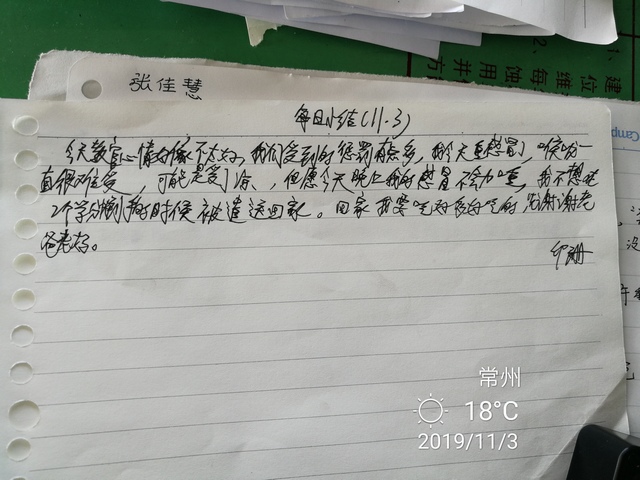 张佳慧
每日小结(11.3)
今天教官心情好像不太好,我们受到的惩罚有点多,我今天重感冒了,喉咙一
直很难受,可能是受了凉,但愿今天晚上我的感冒不会加重,我不想
个学分的时候被遣送回家。回家我要吃好多好吃的,谢谢老
爸老妈。
常州
18°C
2019/11/3
Camp